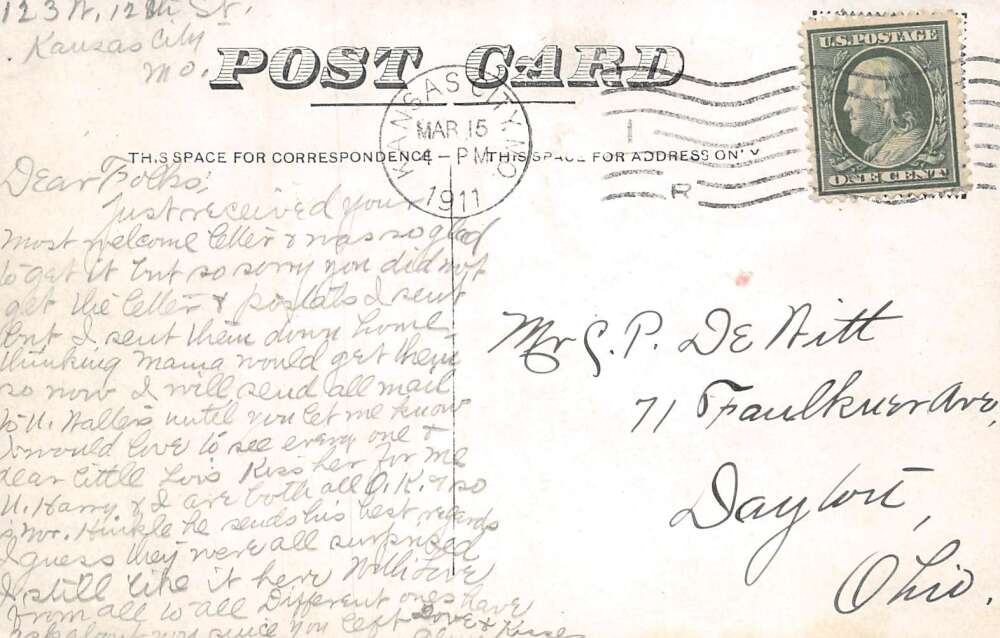 123 W. 12th St.
Kansas City
Mo.
POST CARD
KANSAS CITY, MO.
MAR 15
4 - PM
1911
U.S. POSTAGE
ONE CENT
1
R
THIS SPACE FOR CORRESPONDENCE
THIS SPACE FOR ADDRESS ONLY
Dear Folks;
Just received your
most welcome letter & was so glad
to get it but so sorry you did not
get the letter & postals I sent
but I sent them down home
thinking Mama would get them
so now I will send all mail
to U. Walters until you let me know
I would love to see every one &
dear little Lois Kiss her for me
U. Harry & I are both all O.K. & so
is Mr. Hinkle he sends his best regards
I guess they were all surprised
I still like it here With Love
From all to all Different ones have
ask about you since you left Love &
Mr G. P. DeWitt
71 Faulkner Ave,
Dayton,
Ohio.